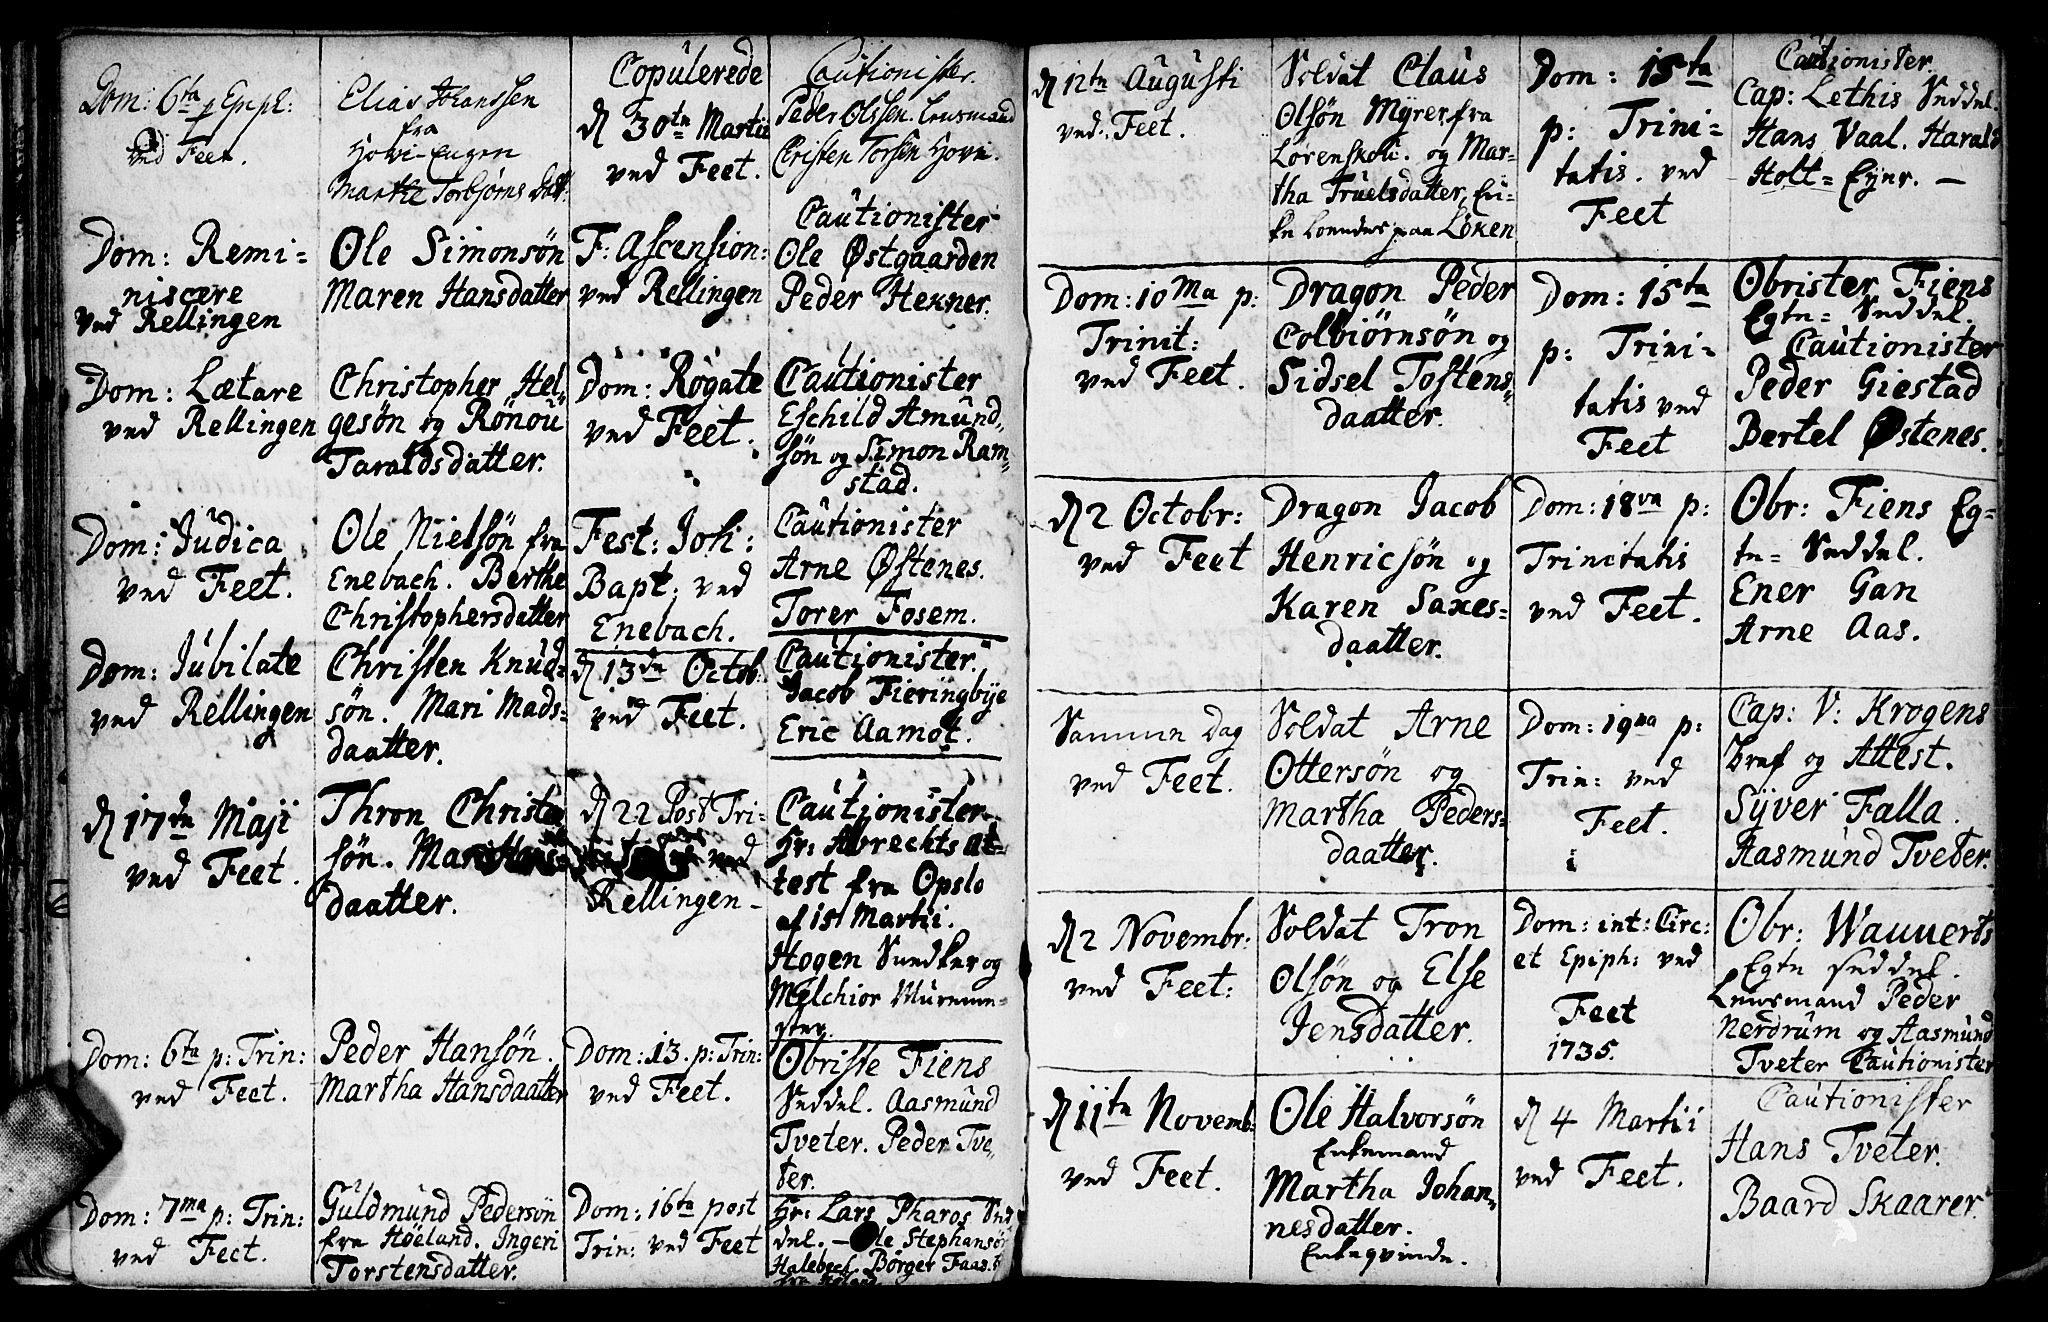 Dom: 6ta p Epiph:
ved Feet.
Elias Johanssen
fra
Hovi-Eugen
Marthe Torbjørns Datt:
Copulerede
d 30te Martii
ved Feet.
Cautionister.
Peder Olssen. Lensmand
Cristen Torsen Hovi.
Dom: Remi-
niscere
ved Rellingen
Ole Simonsøn
Maren Hansdatter
F: Ascension:
ved Rellingen
Cautionister
Ole Østgaarden
Peder Hexner.
Dom: Lætare
ved Rellingen
Christopher Hel-
gesøn og Rønou
Taraldsdatter.
Dom: Rogate
ved Feet.
Cautionister
Eschild Amund-
søn og Simon Ram-
stad.
Dom: Judica
ved Feet.
Ole Nielsøn fra
Enebach. Berthe
Christophersdatter
Fest: Joh:
Bapt: ved
Enebach.
Cautionister
Arne Østenes.
Torer Fosem.
Dom: Jubilate
ved Rellingen
Christen Knud-
søn. Mari Mads-
daatter.
d 13de Octob:
ved Feet.
Cautionister.
Jacob Fieringbye
Eric Aamot.
d 17de Maji
ved Feet.
Thron Christen
søn. Mari Hans-
daatter.
d 22 Post Tri-
ved
Rellingen-
Cautionister
Hr: Abrechts at-
test fra Opslo
af 1st Martii.
Hogen Sundker og
Melchior Mureme-
ster.
Dom: 6ta p: Trin:
ved Feet.
Peder Hansøn.
Martha Hansdaatter
Dom: 13. p: Trin:
ved Feet.
Obriste Fiens
Seddel. Aasmund
Tveter. Peder Tve-
ter.
Dom: 7ma p: Trin:
ved Feet.
Guldmund Pedersøn
fra Høeland. Ingeri
Torstensdatter.
Dom: 16ta post
Trin: ved Feet
Hr: Lars Pharos Sed
del. - Ole Stephansøn
Halebech Børger Faas.
fra Høland
d 12te Augusti
ved: Feet.
Soldat Claus
Olsøn Myrer fra
Lørenskou. og Mar-
tha Truelsdatter, En-
ke paa Løken
Dom: 15ta
p: Trini-
tatis. ved
Feet
Cautionister.
Cap: Lethis Seddel.
Hans Vaal. Harald
Holt= Eyer. -
Dom: 10ma p:
Trinit:
ved Feet.
Dragon Peder
Colbiørnsøn og
Sidsel Tostens-
daatter.
Dom: 15ta
p: Trini-
tatis ved
Feet
Obrister Fiens
Egte= Seddel.
Cautionister
Peder Giestad
Bertel Østenes.
d 2 Octobr:
ved Feet
Dragon Jacob
Henricsøn og
Karen Saxes-
daatter.
Dom: 18va p:
Trinitatis
ved Feet.
Obr: Fiens Eg-
te= Seddel.
Ener Gan
Arne Aas.
Samme Dag
ved Feet.
Soldat Arne
Ottersøn og
Martha Peders-
daatter.
Dom: 19na p:
Trin: ved
Feet.
Cap: V: Krogens
Bref og Attest.
Syver Falla.
Aasmund Tveter.
d 2 Novembr:
ved Feet:
Soldat Tron
Olsøn og Else
Jensdatter.
Dom: int: Circ:
et Epiph: ved
Feet
1735.
Obr: Wauuerts
Egte seddel.
Lensmand Peder
Nerdrum og Aasmund
Tveter Cautionister
d 11te Novemb:
ved Feet.
Ole Halvorsøn
Enkemand
Martha Johan-
nesdatter.
Enkeqvinde.
d 4 Martii
ved Feet.
Cautionister
Hans Tveter.
Baard Skaarer.